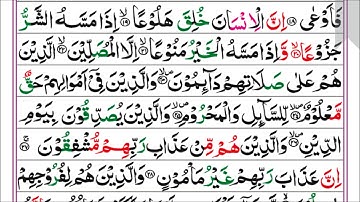 فَاَوْعٰى ۝۱۸ اِنَّ الْاِنْسَانَ خُلِقَ هَلُوْعًا ۝۱۹ اِذَا مَسَّهُ الشَّرُّ
جَزُوْعًا ۝۲۰ وَّاِذَا مَسَّهُ الْخَيْرُ مَنُوْعًا ۝۲۱ اِلَّا الْمُصَلِّيْنَ ۝۲۲ الَّذِيْنَ
هُمْ عَلٰى صَلَاتِهِمْ دَآئِمُوْنَ ۝۲۳ وَالَّذِيْنَ فِىْٓ اَمْوَالِهِمْ حَقٌّ
مَّعْلُوْمٌ ۝۲۴ لِّلسَّآئِلِ وَالْمَحْرُوْمِ ۝۲۵ وَالَّذِيْنَ يُصَدِّقُوْنَ بِيَوْمِ
الدِّيْنِ ۝۲۶ وَالَّذِيْنَ هُمْ مِّنْ عَذَابِ رَبِّهِمْ مُّشْفِقُوْنَ ۝۲۷
اِنَّ عَذَابَ رَبِّهِمْ غَيْرُ مَاْمُوْنٍ ۝۲۸ وَالَّذِيْنَ هُمْ لِفُرُوْجِهِمْ